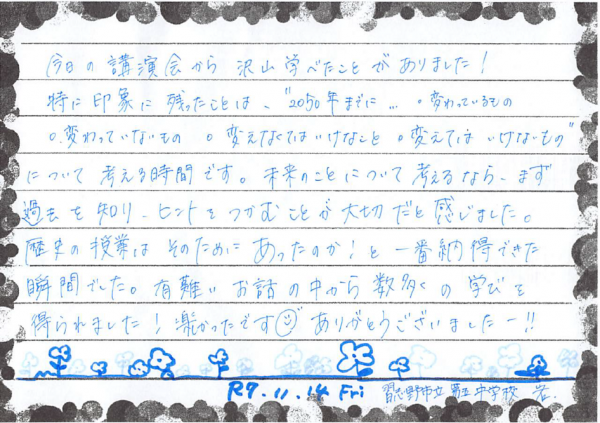 今日の講演会から沢山学べたことがありました!
特に印象に残ったことは、"2050年までに… ○変わっているもの
○変わっていないもの ○変えなくてはいけないこと ○変えてはいけないもの"
について考える時間です。未来のことについて考えるなら、まず
過去を知り、ヒントをつかむことが大切だと感じました。
歴史の授業はそのためにあったのか!と一番納得できた
瞬間でした。有難いお話の中から数多くの学びを
得られました!楽しかったです ありがとうございましたー!!
R7.11.14 Fri 習志野市立 中学校